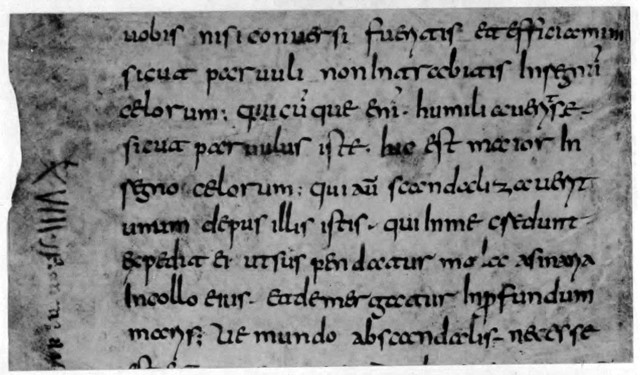 uobis nisi conuersi fueratis et efficiamini
sicut paruuli non Intrabitis Inregnū
celorum; quicūque enī. humiliauer̄ se.
sicut paruulus iste. hic est maior In
regno celorum; qui aū scandalizauerit
unum depus illis istis. qui Inme credunt
expedit ei utsus pendatur mola asinaria
Incollo eius. et demergatur Inpfundum
maris; Ue mundo abscandalis. necesse
XVIIII